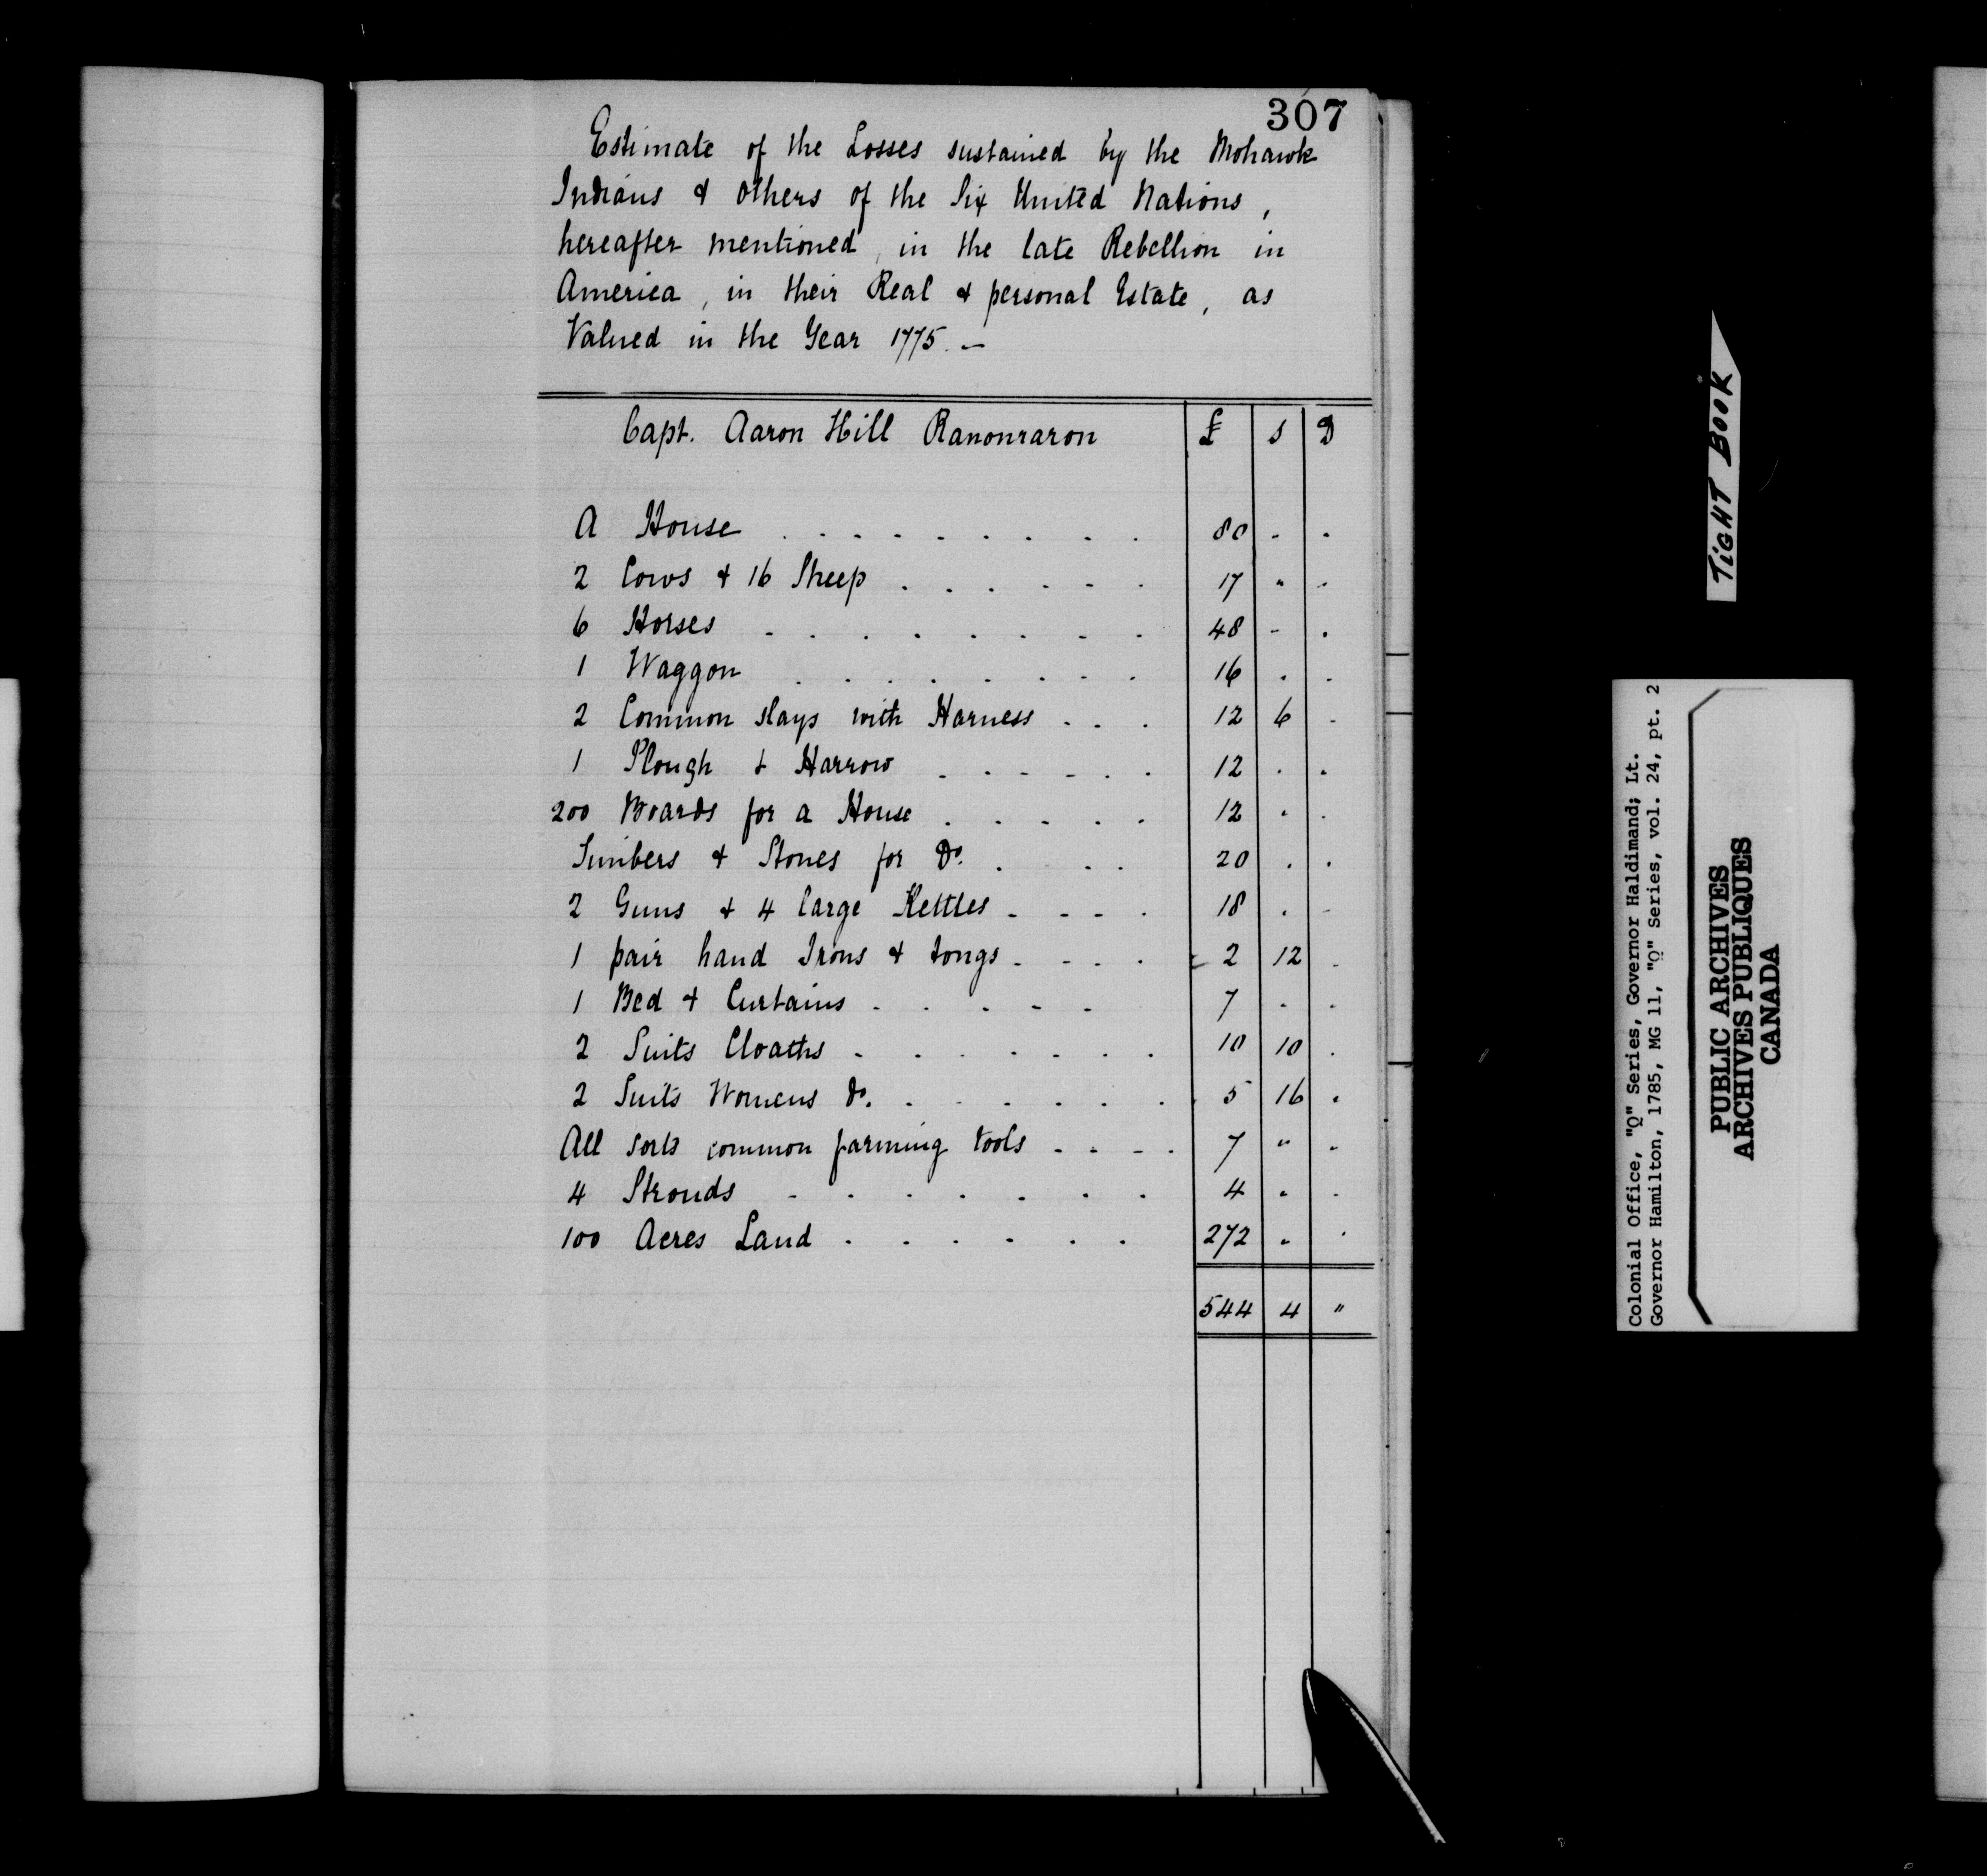 307
Estimate of the Losses sustained by the Mohawk
Indians & others of the Six United Nations,
hereafter mentioned, in the late Rebellion in
America, in their Real & personal Estate, as
Valued in the Year 1775. —
Capt. Aaron Hill Ranonraron £ s D
A House . . . . . . . . . 80 . .
2 Cows & 16 Sheep . . . . . . 17 " .
6 Horses . . . . . . . . 48 - .
1 Waggon . . . . . . . . 16 . .
2 Common slays with Harness . . . 12 6 .
1 Plough & Harrow . . . . . . 12 . .
200 Boards for a House . . . . . 12 . .
Timbers & Stones for Do. . . . 20 . .
2 Guns & 4 large Kettles . . . . 18 . .
1 pair hand Irons & tongs . . . . 2 12 .
1 Bed & Curtains . . . . . 7 . .
2 Suits Cloaths . . . . . . . 10 10 .
2 Suits Womens Do. . . . . . . 5 16 .
All sorts common farming tools . . . . 7 " .
4 Strouds . . . . . . . 4 . .
100 Acres Land . . . . . . 272 . .
544 4 "
TIGHT BOOK
Colonial Office, "Q" Series, Governor Haldimand; Lt.
Governor Hamilton, 1785, MG 11, "Q" Series, vol. 24, pt. 2
PUBLIC ARCHIVES
ARCHIVES PUBLIQUES
CANADA